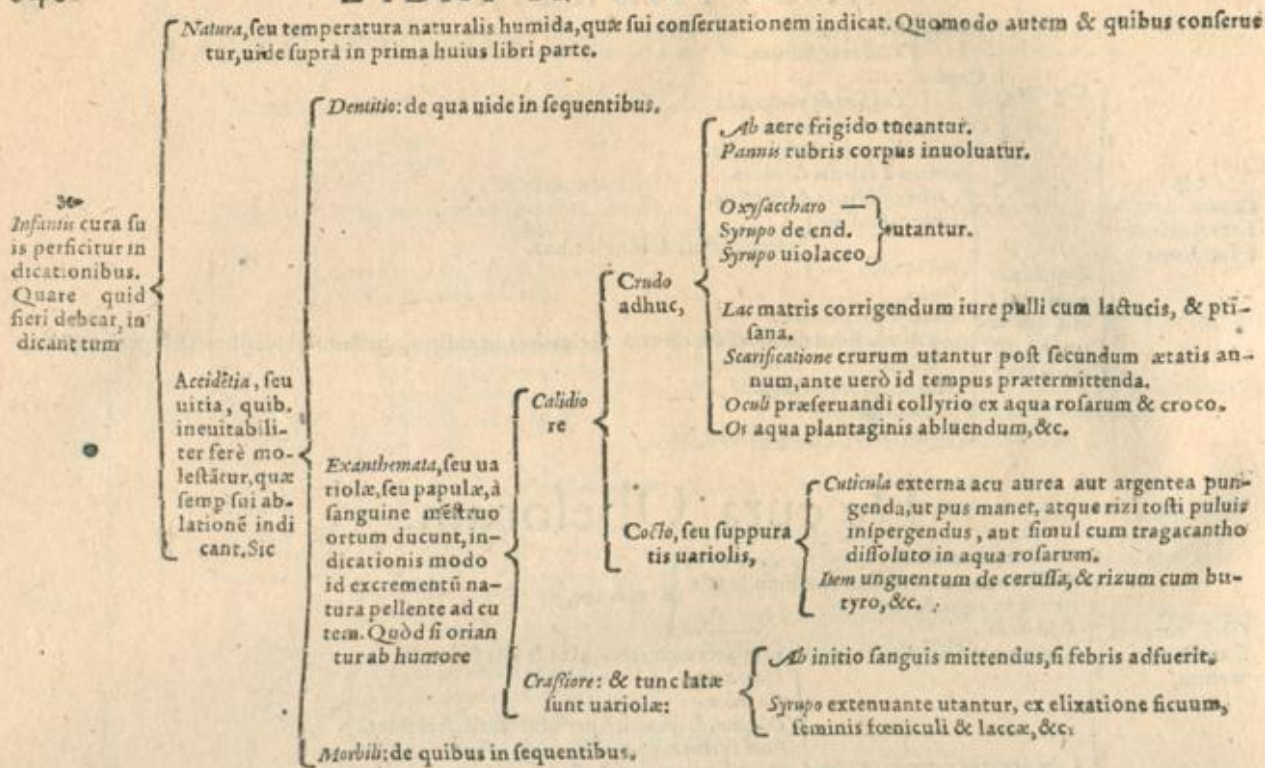 Natura, seu temperatura naturalis humida, quæ sui conseruationem indicat. Quomodo autem & quibus conserue
tur, uide suprà in prima huius libri parte.
36
Infantis cura su
is perficitur in
dicationibus.
Quare quid
fieri debeat, in
dicant tum
Accidẽtia, seu
uitia, quib.
ineuitabili-
ter ferè mo-
lestãtur, quæ
semp sui ab-
lationẽ indi
cant. Sic
Dentitio: de qua uide in sequentibus.
Exanthemata, seu ua
riolæ, seu papulæ, à
sanguine mẽstruo
ortum ducunt, in-
dicationis modo
id excrementũ na-
tura pellente ad cu
tem. Quòd si orian
tur ab humore
Calidio
re
Crudo
adhuc,
Ab aere frigido tueantur.
Pannis rubris corpus inuoluatur.
Oxysaccharo
Syrupo de end.
Syrupo uiolaceo
utantur.
Lac matris corrigendum iure pulli cum lactucis, & pti-
sana.
Scarificatione crurum utantur post secundum ætatis an-
num, ante uerò id tempus prætermittenda.
Oculi præseruandi collyrio ex aqua rosarum & croco.
Os aqua plantaginis abluendum, &c.
Cocto, seu suppura
tis uariolis,
Cuticula externa acu aurea aut argentea pun-
genda, ut pus manet, atque rizi tosti puluis
inspergendus, aut simul cum tragacantho
dissoluto in aqua rosarum.
Item unguentum de cerussa, & rizum cum bu-
tyro, &c.
Crassiore: & tunc latæ
sunt uariolæ:
Ab initio sanguis mittendus, si febris adfuerit.
Syrupo extenuante utantur, ex elixatione ficuum,
seminis fœniculi & laccæ, &c.
Morbili: de quibus in sequentibus.